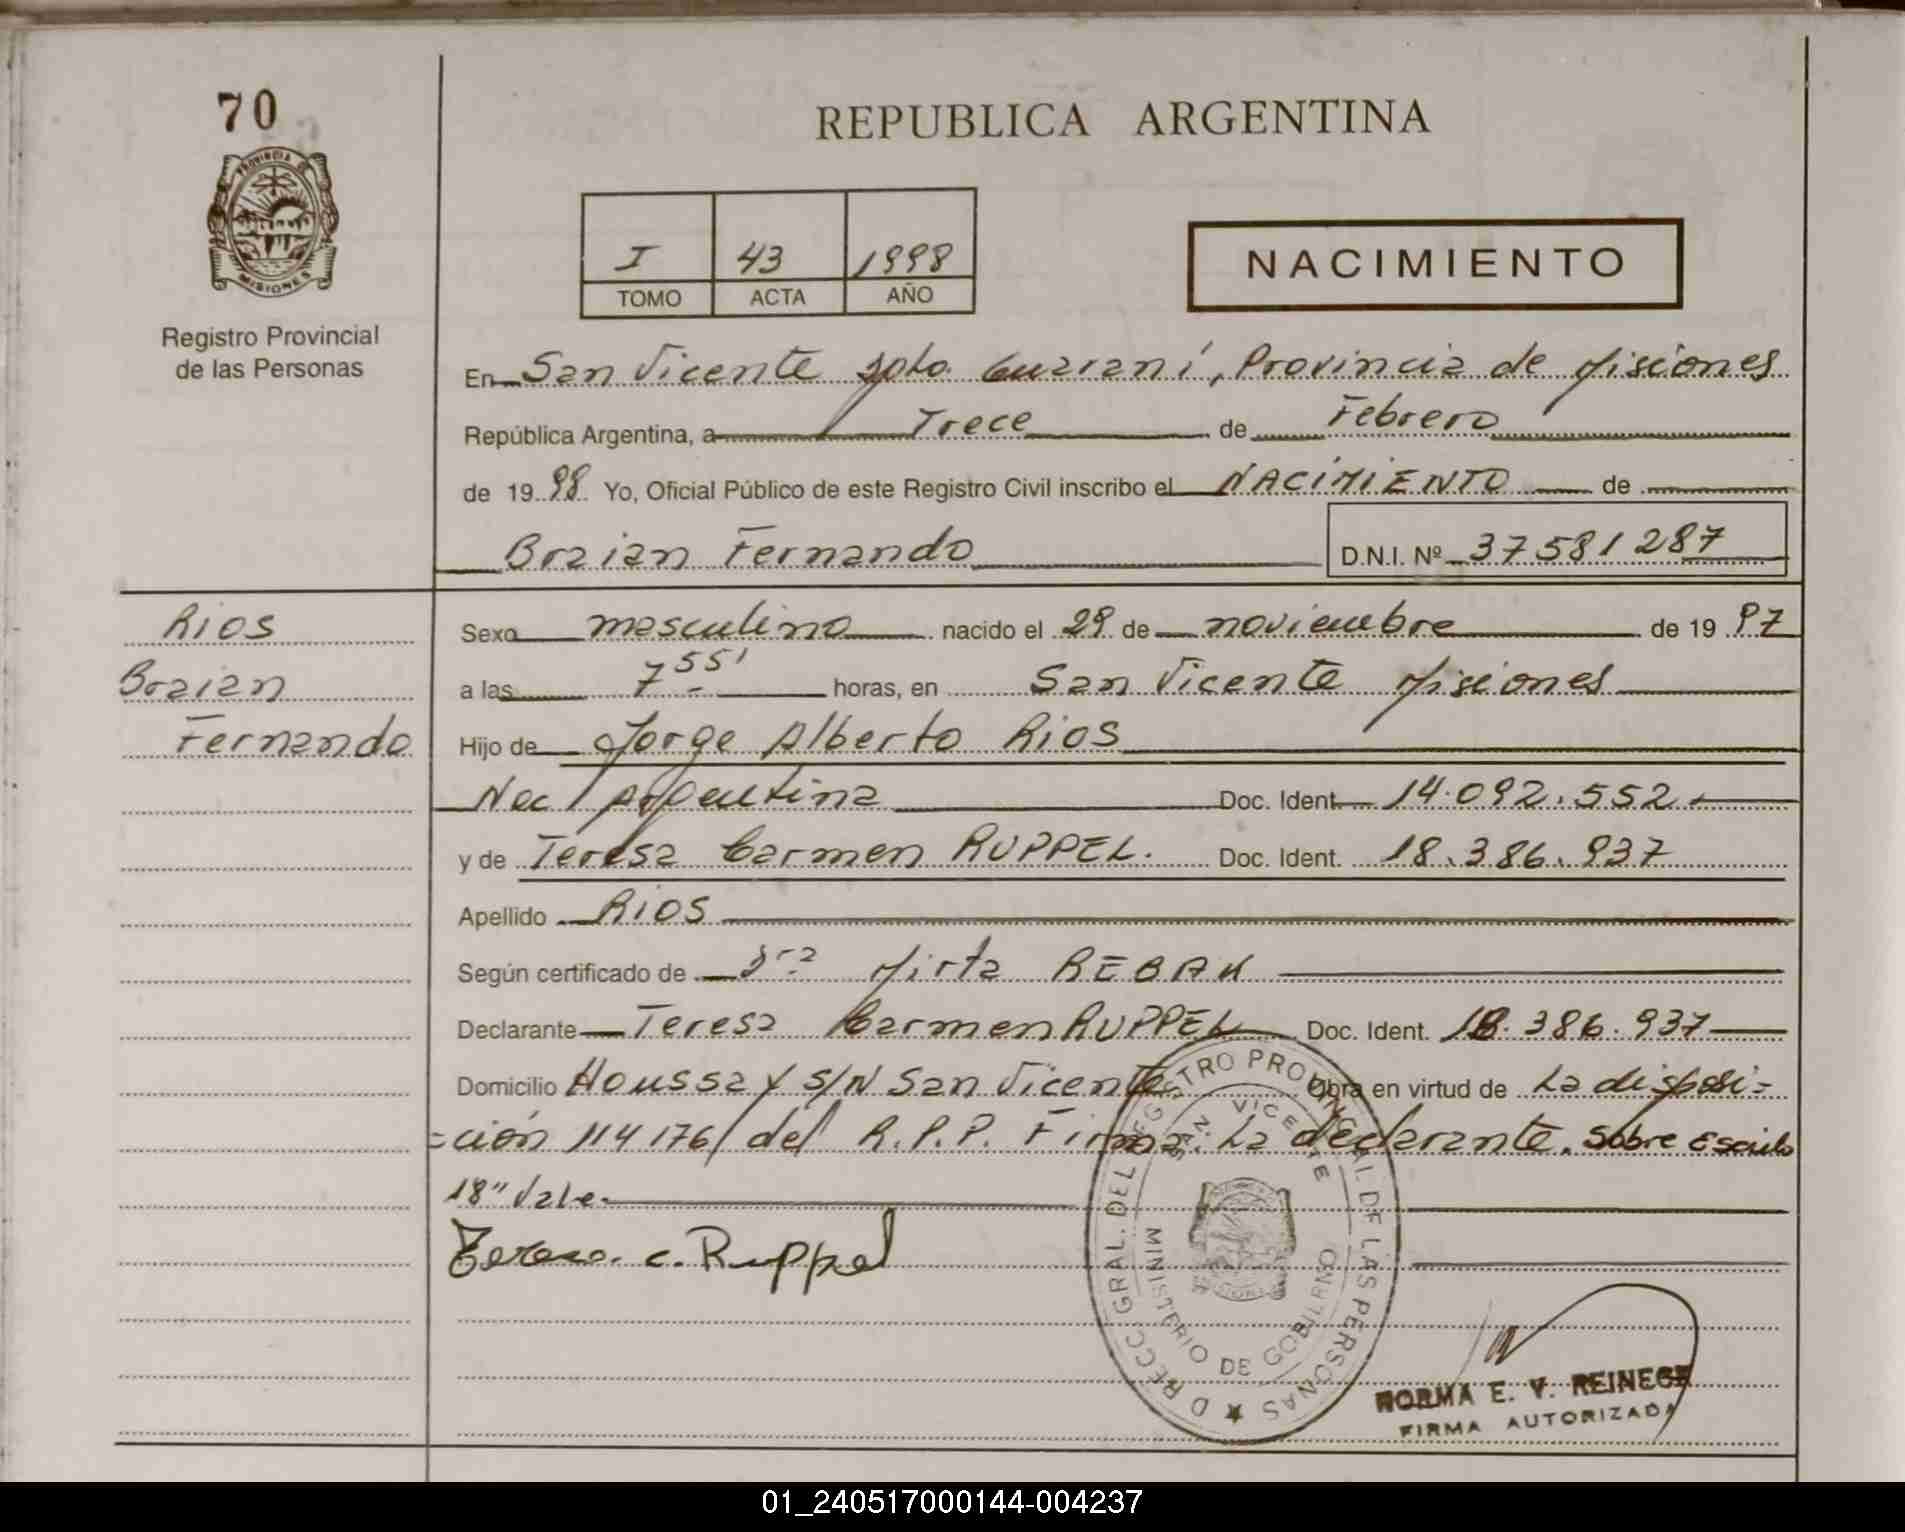 70
REPUBLICA ARGENTINA
PROVINCIA D
MISIONES
Registro Provincial
de las Personas
I 43 1998
TOMO ACTA AÑO
NACIMIENTO
En San Vicente Dpto. Guarani, Provincia de Misiones
República Argentina, a Trece de Febrero
de 19 98 Yo, Oficial Público de este Registro Civil inscribo el NACIMIENTO de
Braian Fernando D.N.I. Nº 37581287
Rios
Braian
Fernando
Sexo masculino nacido el 29 de noviembre de 19 97
a las 7 55' horas, en San Vicente Misiones
Hijo de Jorge Alberto Rios
Nac Argentina Doc. Ident. 14.092.552.
y de Teresa Carmen RUPPEL. Doc. Ident. 18.386.937
Apellido Rios
Según certificado de Mirta REBAK
Declarante Teresa Carmen RUPPEL Doc. Ident. 18.386.937
Domicilio Houssay S/N San Vicente Obra en virtud de La disposi=
=ción 114176/ del R.P.P. Firma: La declarante. Sobre Escrito
18" Vale.
Teresa. c. Ruppel
D RECC GRAL. DEL REGISTRO PROVINCIAL DE LAS PERSONAS
SAN VICENTE
MINISTERIO DE GOBIERNO
NORMA E. V. REINECK
FIRMA AUTORIZADA
01_240517000144-004237